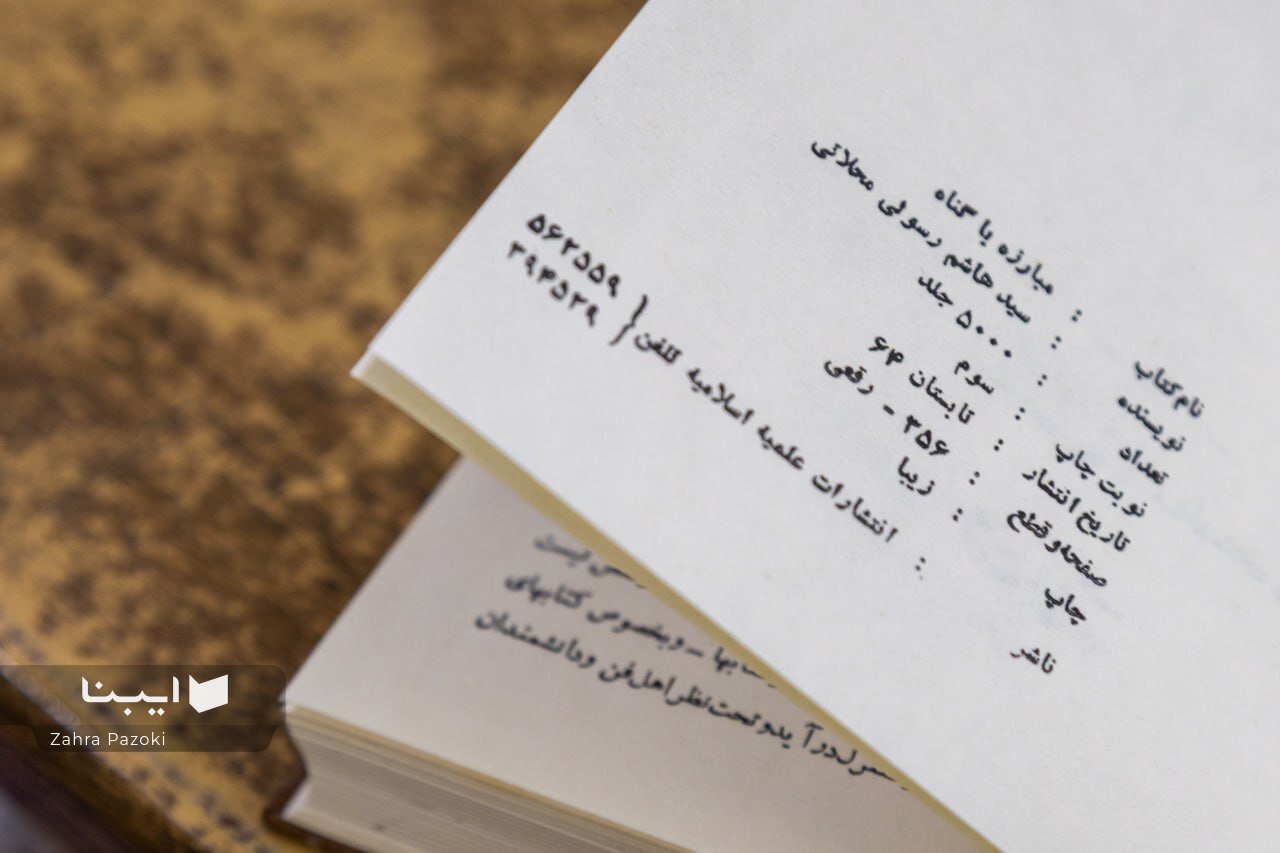 نام کتاب : مبارزه با گناه
نویسنده : سید هاشم رسولی محلاتی
تعداد : ۵۰۰۰ جلد
نوبت چاپ : سوم
تاریخ انتشار : تابستان ۶۴
صفحه و قطع : ۳۵۶ - رقعی
چاپ : زیبا
ناشر : انتشارات علمیه اسلامیه تلفن { ۵۶۲۵۵۹ }
۳۹۴۵۲۹
نیست
ـ وبخصوص کتابهای
درآید و تحت نظر اهل فن ودانشمندان
ایبنا
Zahra Pazoki